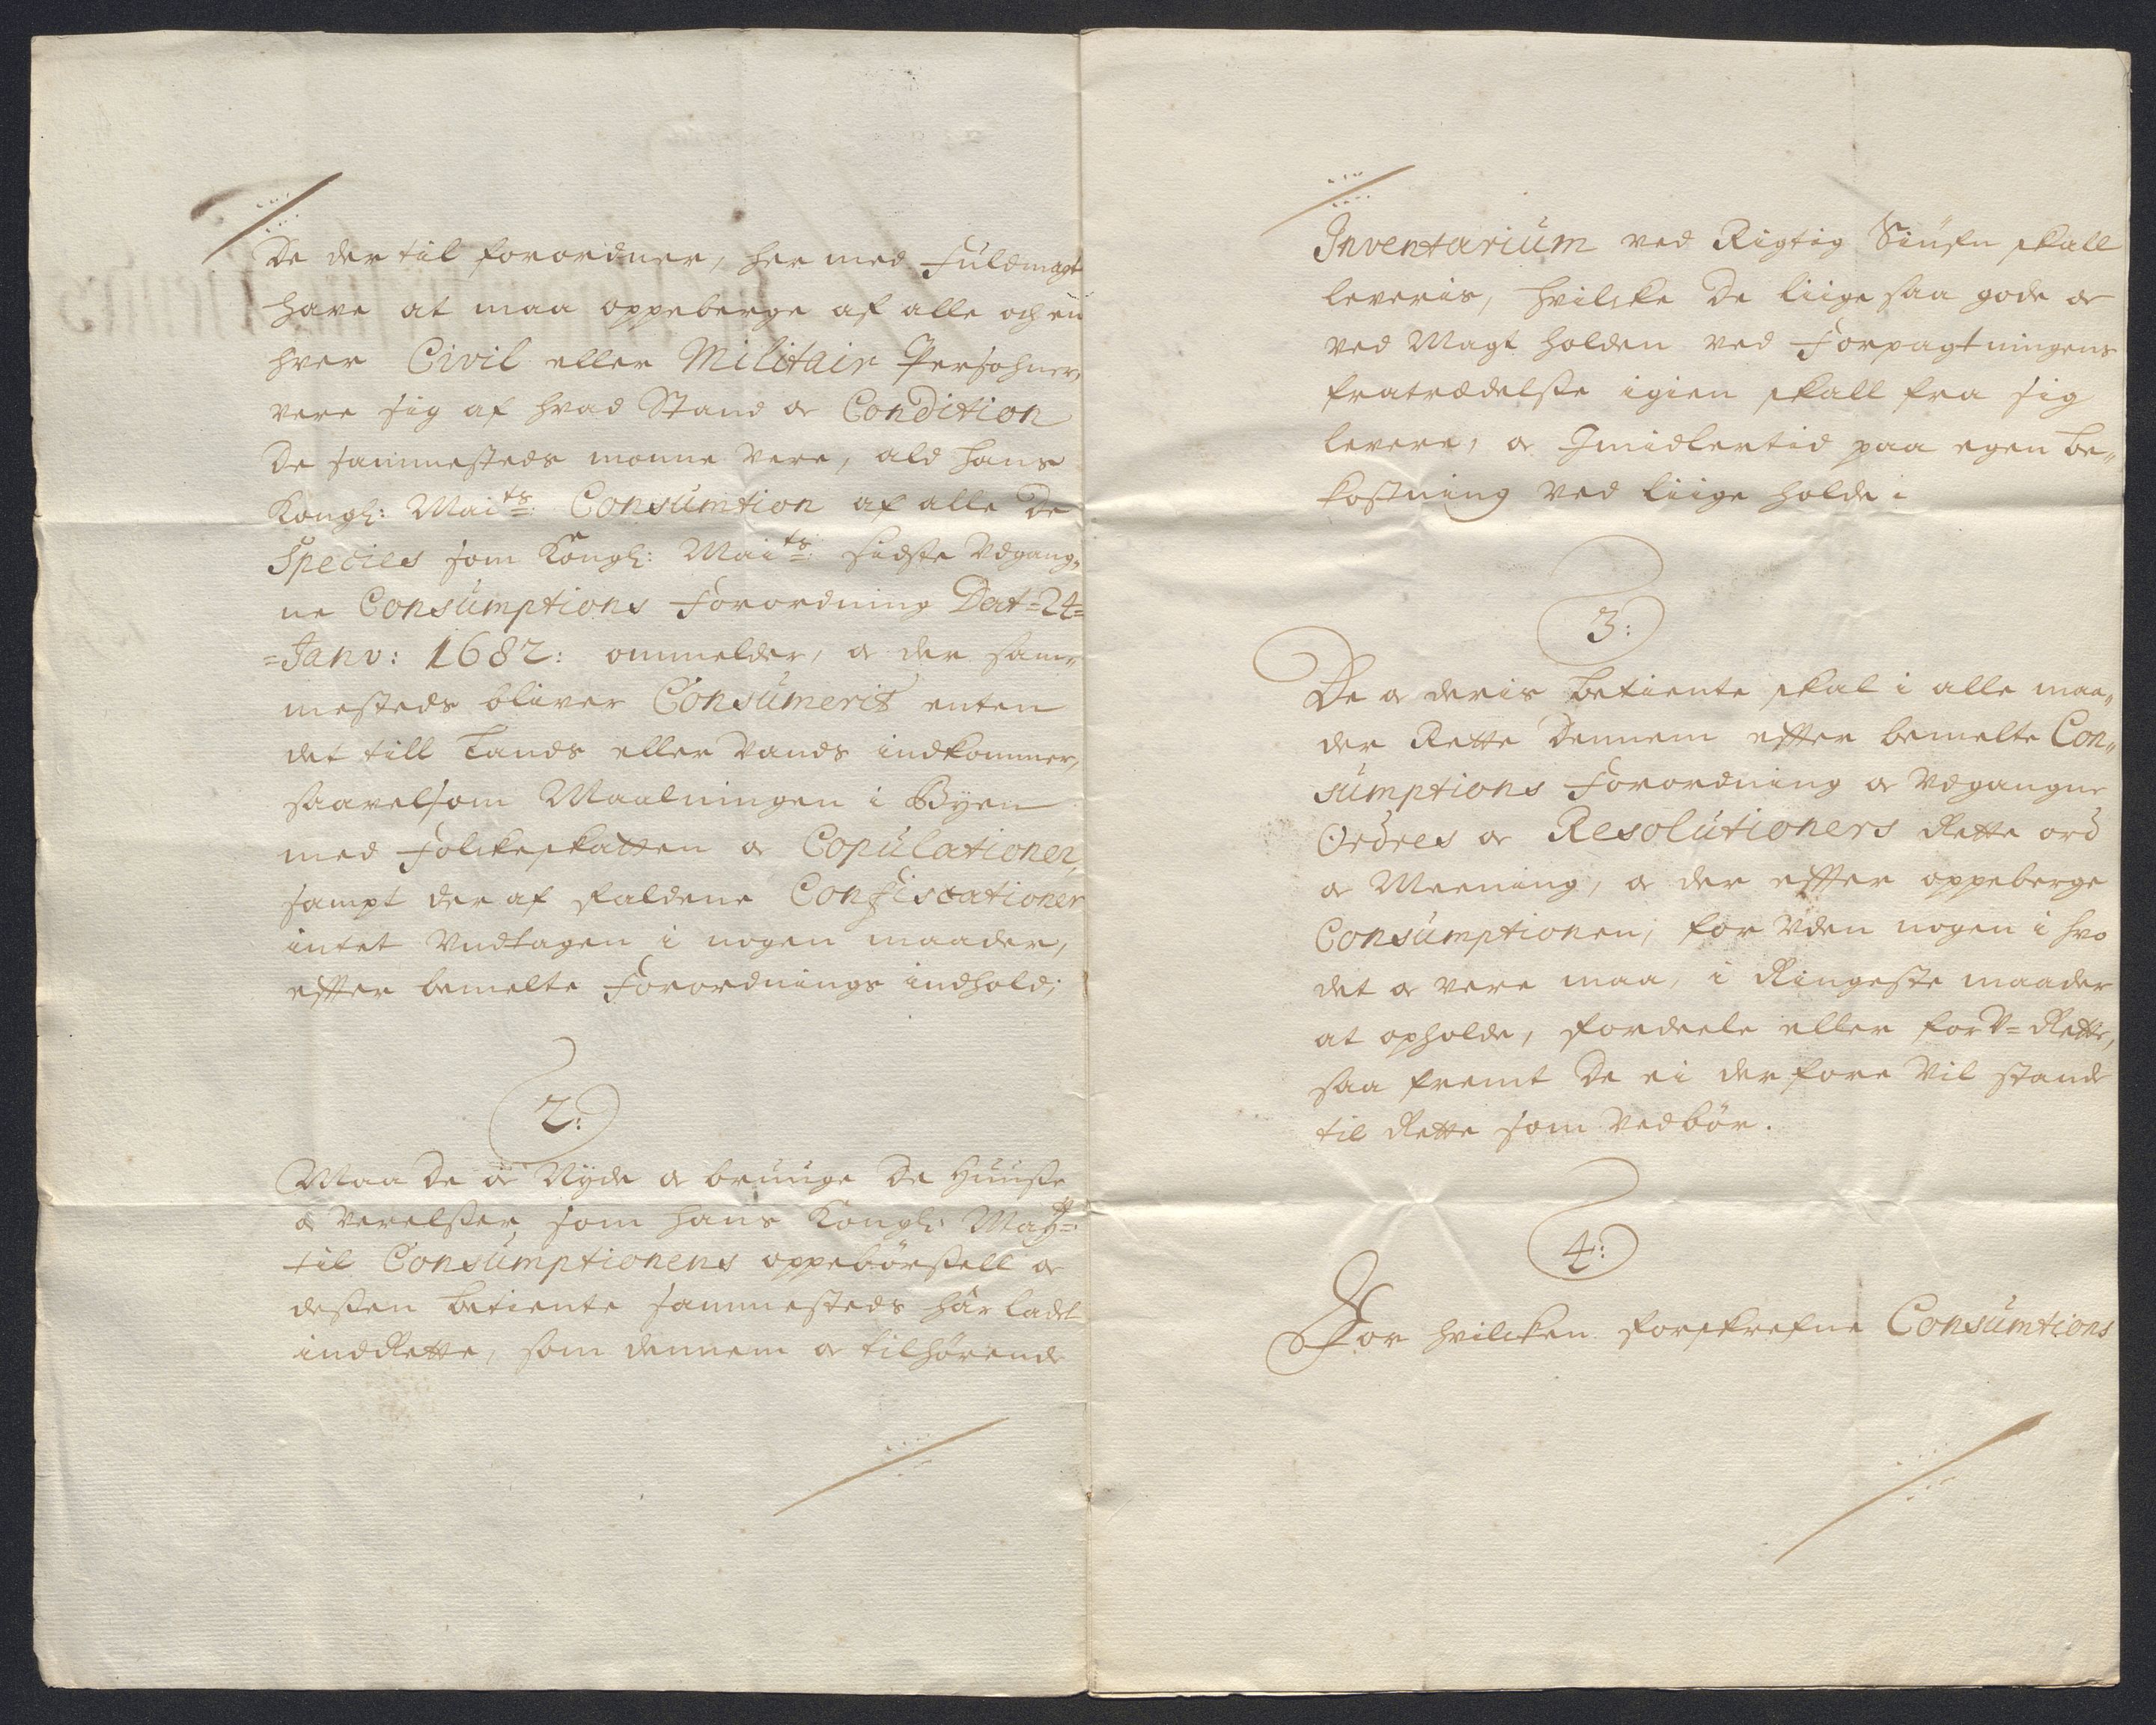 De der til forordner, her med Fuldmagt
have at maa oppeberge af alle och en
hver Civil eller Militair Persohner,
vere sig af hvad Stand oc Condition
De sammesteds monne vere, ald hans
Kongl: Maits: Consumtion af alle De
Species som Kongl: Maits: sidste Udgang„
ne Consumptions Forordning Dat=24=
=Janv: 1682: ommelder, oc der sam„
mesteds bliver Consumerit enten
det till Lands eller Vands indkommer,
saavelsom Maalningen i Byen
med Folckeskatten oc Copulationer,
sampt der af faldene Confiscationer
intet Undtagen i nogen maader,
effter bemelte Forordnings indhold;
2:
Maa De oc Nyde oc bruuge De Huuse
oc Verelser, som hans Kongl: Maytt:
til Consumptionens oppebørsell oc
dessen betiente sammesteds har ladet
indRette, som dennem oc tilhørende
Inventarium ved Rigtig Siufn skall
leveris, hvilcke De liige saa gode oc
ved Magt holden ved Forpagtningens
fratrædelse igien skall fra sig
levere, oc Imidlertid paa egen be„
kostning ved liige holde.
3:
De oc deris betiente skal i alle maa„
der Rette Dennem effter bemelte Con„
sumptions Forordning oc Udgangne
Ordres oc Resolutioners Rette ord
oc Meening, oc der effter oppeberge
Consumptionen, for Uden nogen i hvo
det oc vere maa, i Ringeste maader
at opholde, fordeele eller forU=Rette,
saa fremt De ei derfore Vil stande
til Rette som Vedbør.
4:
For hvilcken forskrefne Consumtions